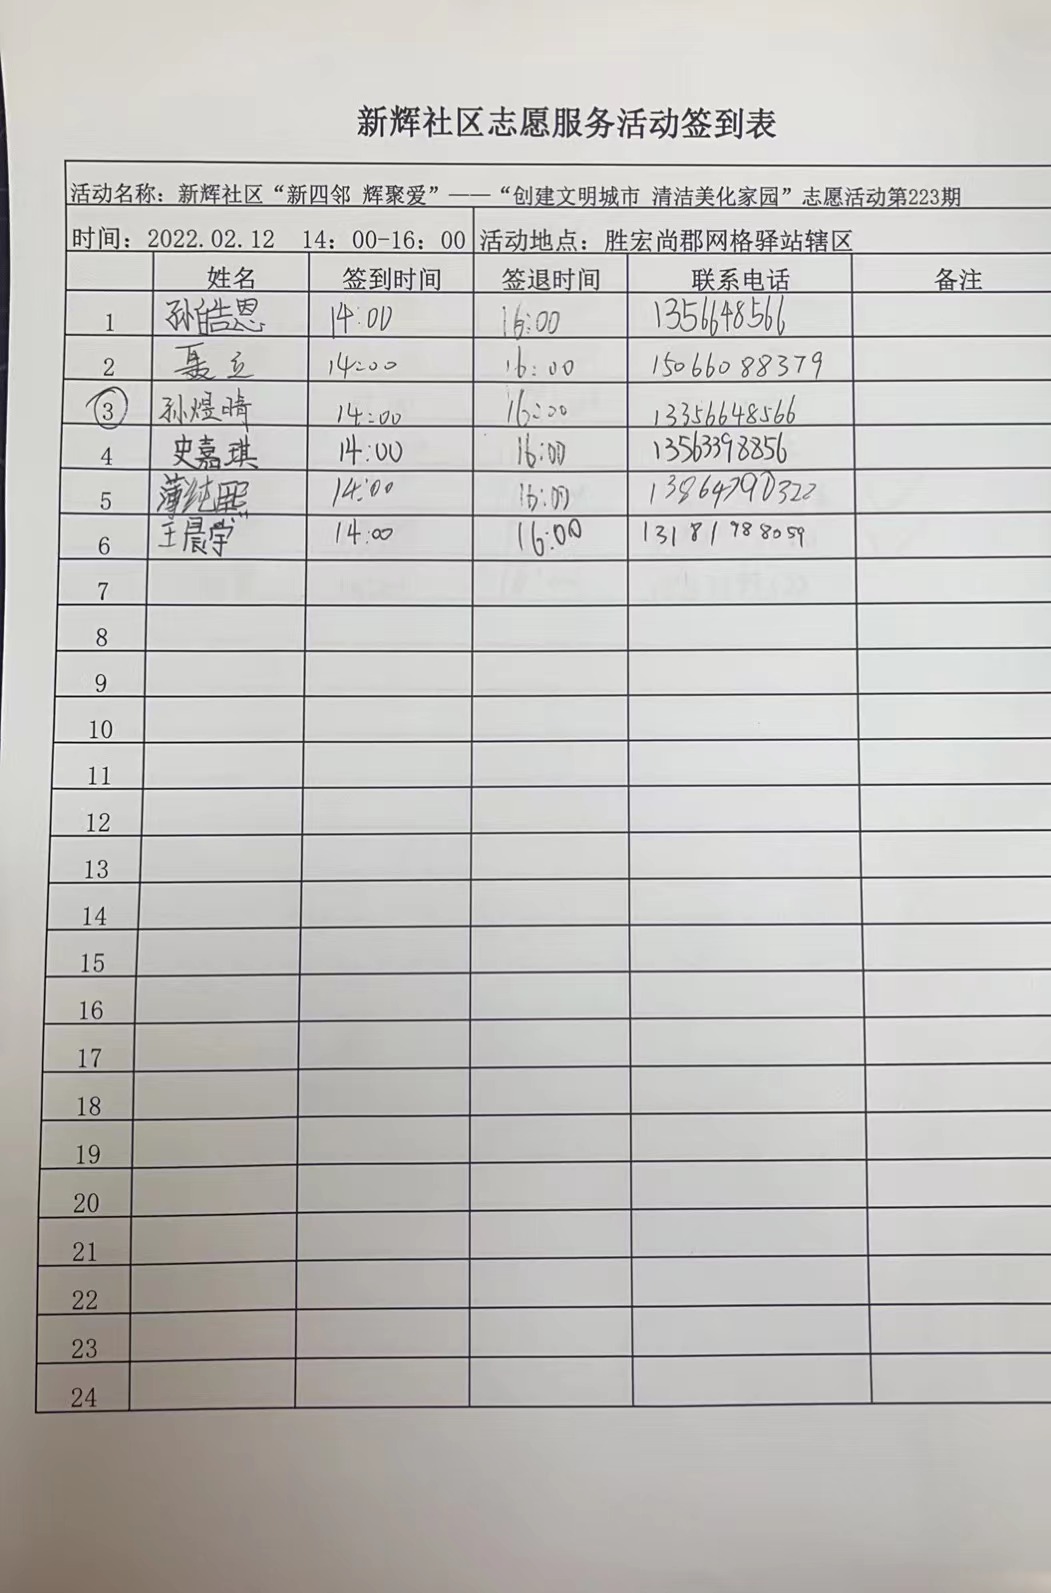 新辉社区志愿服务活动签到表
活动名称：新辉社区“新四邻 辉聚爱”——“创建文明城市 清洁美化家园”志愿活动第223期
时间：2022.02.12 14：00-16：00 活动地点：胜宏尚郡网格驿站辖区
姓名 签到时间 签退时间 联系电话 备注
1 孙皓恩 14:00 16:00 1356648566
2 聂立 14:00 16:00 15066088379
3 孙煜晴 14:00 16:00 13356648566
4 史嘉琪 14:00 16:00 13563398856
5 薄纯熙 14:00 16:00 13864790322
6 王晨学 14:00 16:00 13181988059
7
8
9
10
11
12
13
14
15
16
17
18
19
20
21
22
23
24